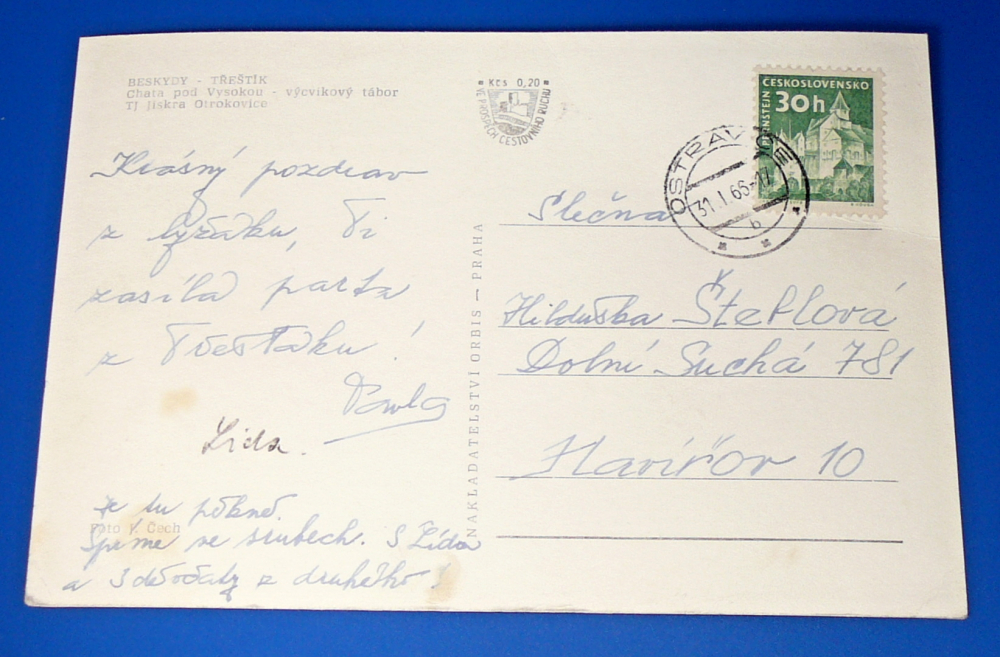 BESKYDY - TŘEŠTÍK
Chata pod Vysokou - výcvikový tábor
TJ Jiskra Otrokovice
Kčs 0,20
VE PROSPĚCH CESTOVNÍHO RUCHU
ČESKOSLOVENSKO
30h
PERNŠTEJN
OSTRAVICE
31.I.66-17
b
Krásný pozdrav
z lyžáku, Ti
zasílá parta
z Třešťáku!
Pavla
Lída.
Je tu pěkně.
Foto J. Čech
Spíme ve srubech. S Lídou
a 3 děvčaty z druhého!
NAKLADATELSTVÍ ORBIS — PRAHA
Slečna
Hilduška Šteflová
Dolní Suchá 781
Havířov 10